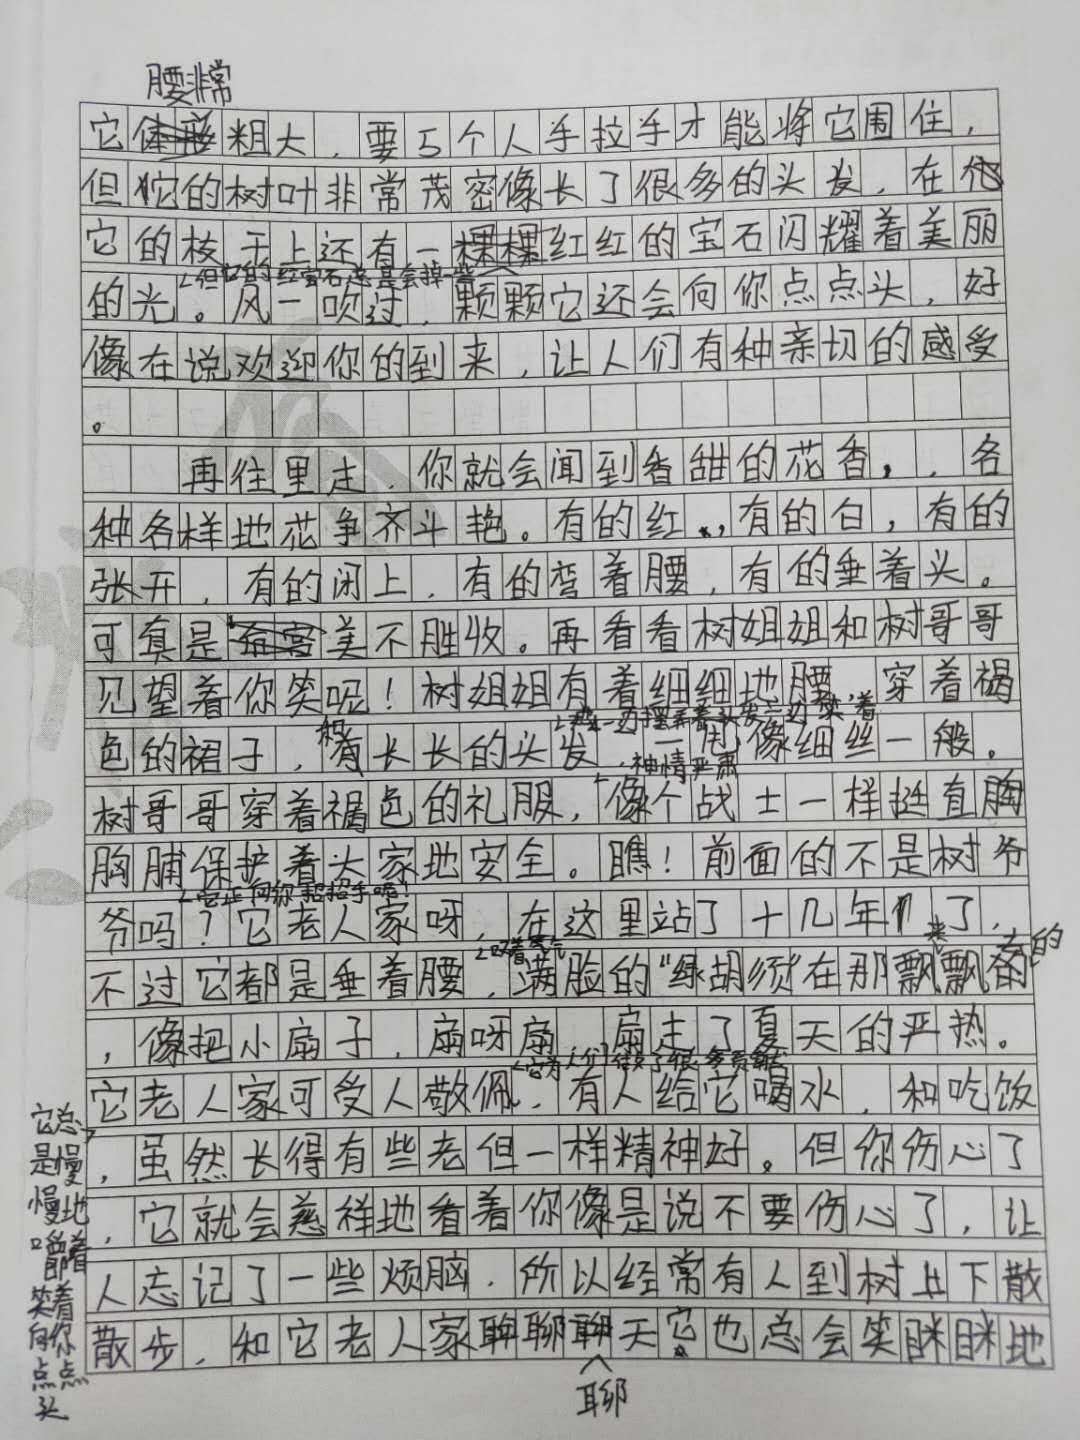 腰非常
它粗大，要5个人手拉手才能将它围住，
但它的树叶非常茂密像长了很多的头发，在
它的枝干上还有一红红的宝石闪耀着美丽
但它的红宝石总是会掉一些
的光。风一吹过，颗颗它还会向你点点头，好
像在说欢迎你的到来，让人们有种亲切的感受
。
再往里走，你就会闻到香甜的花香，，各
种各样地花争齐斗艳。有的红，有的白，有的
张开，有的闭上，有的弯着腰，有的垂着头。
可真是美不胜收。再看看树姐姐和树哥哥
见望着你笑呢！树姐姐有着细细地腰，穿着褐
一边摆弄着头发一边笑着
色的裙子，和有长长的头发，一甩像细丝一般。
神情严肃
树哥哥穿着褐色的礼服，像个战士一样挺直胸
胸脯保护着大家地安全。瞧！前面的不是树爷
它正向你招招手呢！
爷吗？它老人家呀，在这里站了十几年了，
叹着气
不过它都是垂着腰，满脸的“绿胡须”在那飘飘
来 去的
，像把小扇子，扇呀扇，扇走了夏天的严热。
它为人们做了很多贡献
它老人家可受人敬佩，有人给它喝水，和吃饭
，虽然长得有些老但一样精神好。但你伤心了
，它就会慈祥地看着你像是说不要伤心了，让
人忘记了一些烦脑，所以经常有人到树上下散
散步，和它老人家聊聊聊天它也总会笑眯眯地
聊
它总
是慢
慢地
嚼着
笑着
向你
点点
头